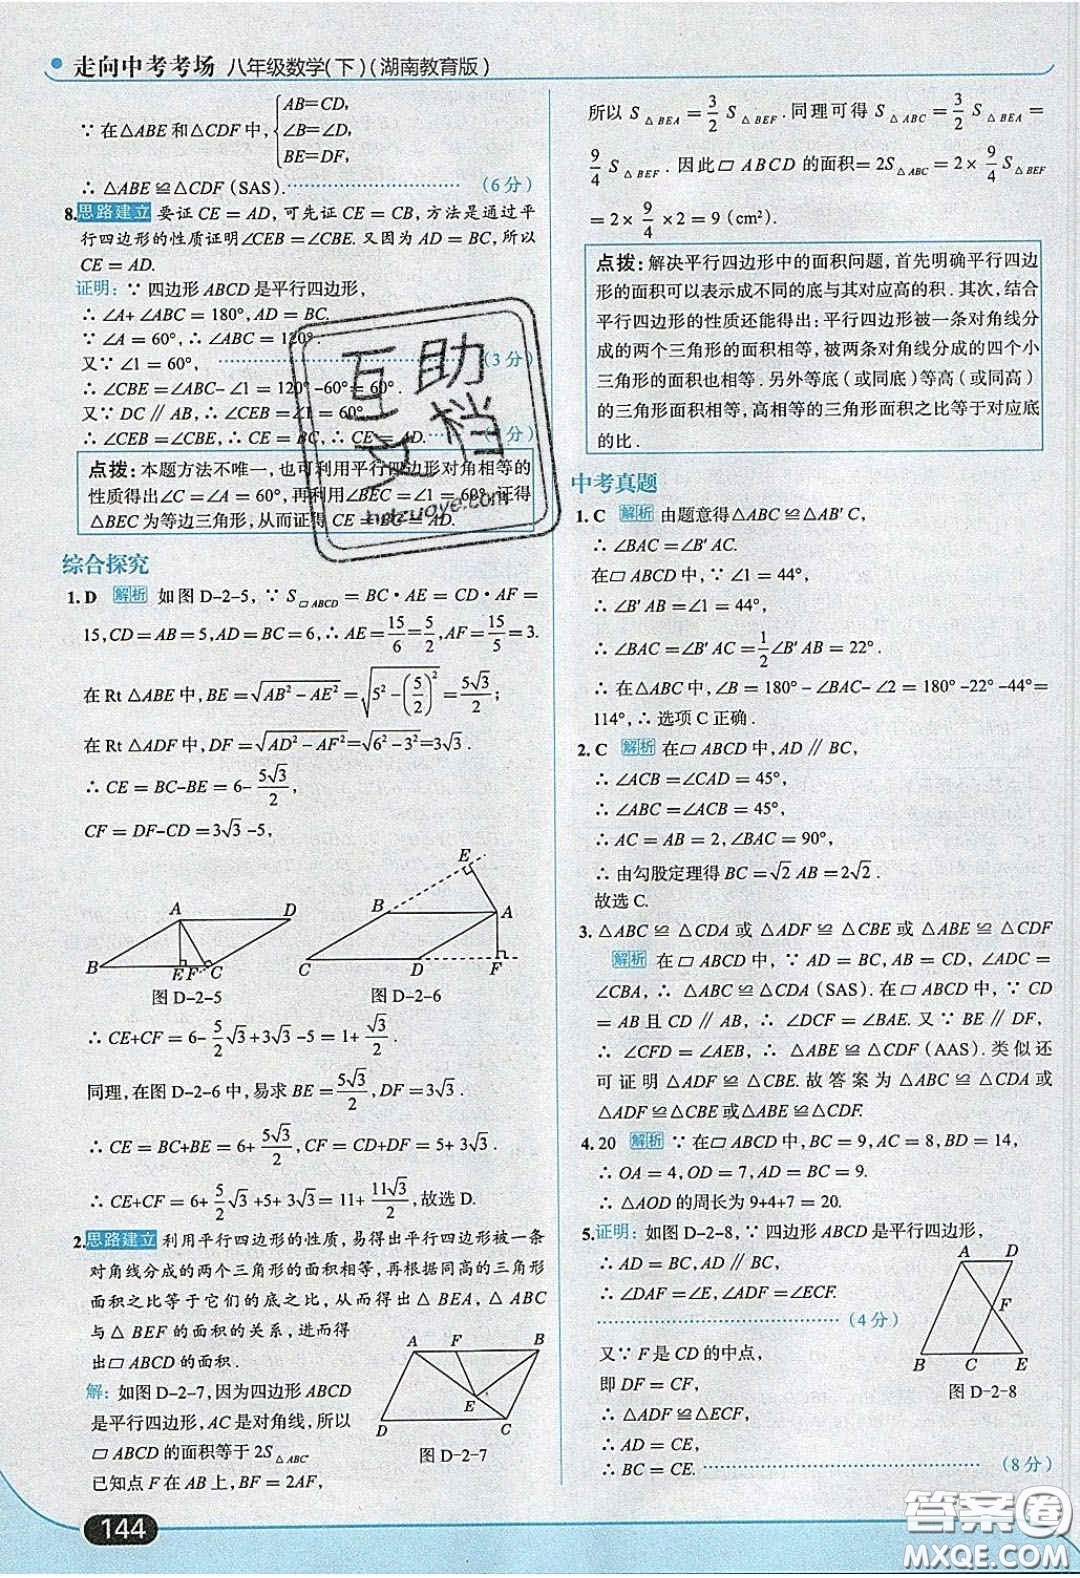 走向中考考场 八年级数学(下)(湖南教育版)
∵ 在△ABE 和△CDF 中, { AB=CD,
∠B=∠D,
BE=DF,
∴ △ABE ≌△CDF (SAS). (6 分)
8. 思路建立 要证 CE = AD, 可先证 CE = CB, 方法是通过平
行四边形的性质证明∠CEB =∠CBE. 又因为 AD = BC, 所以
CE = AD.
证明: ∵ 四边形 ABCD 是平行四边形,
∴ ∠A+ ∠ABC = 180°, AD = BC.
∵ ∠A = 60°, ∴ ∠ABC = 120°.
又∵ ∠1 = 60°, (3 分)
∴ ∠CBE =∠ABC- ∠1 = 120° -60°= 60° .
又∵ DC ∥ AB, ∴ ∠CEB =∠1 = 60°
∴ ∠CEB =∠CBE, ∴ CE = BC, ∴ CE = AD. 分)
点拨: 本题方法不唯一, 也可利用平行四边形对角相等的
性质得出∠C =∠A = 60°, 再利用∠BEC =∠1 = 60°, 证得
△BEC 为等边三角形, 从而证得 CE = BC = AD.
综合探究
1. D 解析 如图 D-2-5, ∵ S▱ABCD = BC · AE = CD · AF =
15, CD = AB = 5, AD = BC = 6, ∴ AE = 15/6 = 5/2, AF = 15/5 = 3.
在 Rt △ABE 中, BE = √(AB² - AE²) = √(5² - (5/2)²) = 5√3/2;
在 Rt △ADF 中, DF = √(AD² - AF²) = √(6² - 3²) = 3√3 .
∴ CE = BC-BE = 6- 5√3/2,
CF = DF-CD = 3√3 -5,
A D B E F C
图 D-2-5
E B A C D F
图 D-2-6
∴ CE+CF = 6- 5/2 √3 +3√3 -5 = 1+ √3/2 .
同理, 在图 D-2-6 中, 易求 BE = 5√3/2, DF = 3√3 .
∴ CE = BC+BE = 6+ 5√3/2, CF = CD+DF = 5+ 3√3 .
∴ CE+CF = 6+ 5/2 √3 +5+ 3√3 = 11+ 11√3/2, 故选 D.
2. 思路建立 利用平行四边形的性质, 易得出平行四边形被一条
对角线分成的两个三角形的面积相等, 再根据同高的三角形
面积之比等于它们的底之比, 从而得出 △ BEA, △ ABC
与 △ BEF 的面积的关系, 进而得
出▱ ABCD 的面积.
解: 如图 D-2-7, 因为四边形 ABCD
是平行四边形, AC 是对角线, 所以
▱ ABCD 的面积等于 2S△ABC.
已知点 F 在 AB 上, BF = 2AF,
A F B E D C
图 D-2-7
所以 S△BEA = 3/2 S△BEF . 同理可得 S△ABC = 3/2 S△BEA =
9/4 S△BEF . 因此▱ ABCD 的面积 = 2S△ABC = 2× 9/4 S△BEF
= 2× 9/4 ×2 = 9 (cm²).
点拨: 解决平行四边形中的面积问题, 首先明确平行四边
形的面积可以表示成不同的底与其对应高的积. 其次, 结合
平行四边形的性质还能得出: 平行四边形被一条对角线分
成的两个三角形的面积相等, 被两条对角线分成的四个小
三角形的面积也相等. 另外等底 (或同底) 等高 (或同高)
的三角形面积相等, 高相等的三角形面积之比等于对应底
的比.
中考真题
1. C 解析 由题意得△ABC ≌△AB′ C,
∴ ∠BAC =∠B′ AC.
在▱ ABCD 中, ∵ ∠1 = 44°,
∴ ∠B′ AB =∠1 = 44°,
∴ ∠BAC =∠B′ AC = 1/2 ∠B′ AB = 22° .
∴ 在△ABC 中, ∠B = 180° - ∠BAC- ∠2 = 180° -22° -44°=
114°, ∴ 选项 C 正确 .
2. C 解析 在▱ ABCD 中, AD ∥ BC,
∴ ∠ACB =∠CAD = 45°,
∴ ∠ABC =∠ACB = 45°,
∴ AC = AB = 2, ∠BAC = 90°,
∴ 由勾股定理得 BC = √2 AB = 2√2 .
故选 C.
3. △ABC ≌ △CDA 或 △ADF ≌ △CBE 或 △ABE ≌ △CDF
解析 在 ▱ ABCD 中, ∵ AD = BC, AB = CD, ∠ADC =
∠CBA, ∴ △ABC ≌ △CDA (SAS). 在▱ ABCD 中, ∵ CD
= AB 且 CD ∥ AB, ∴ ∠DCF = ∠BAE. 又∵ BE ∥ DF,
∴ ∠CFD = ∠AEB, ∴ △ABE ≌ △CDF (AAS). 类似还
可证明 △ADF ≌ △CBE. 故答案为 △ABC ≌ △CDA 或
△ADF ≌△CBE 或△ABE ≌△CDF.
4. 20 解析 ∵ 在▱ ABCD 中, BC = 9, AC = 8, BD = 14,
∴ OA = 4, OD = 7, AD = BC = 9.
∴ △AOD 的周长为 9+4+7 = 20.
5. 证明: 如图 D-2-8, ∵ 四边形 ABCD 是平行四边形,
∴ AD = BC, AD ∥ BC,
∴ ∠DAF = ∠E, ∠ADF = ∠ECF.
(4 分)
又∵ F 是 CD 的中点,
即 DF = CF,
∴ △ADF ≌△ECF,
∴ AD = CE,
∴ BC = CE. (8 分)
A D F B C E
图 D-2-8
144
互助
文档
hdzuoye.com
答案圈
MXQE.COM